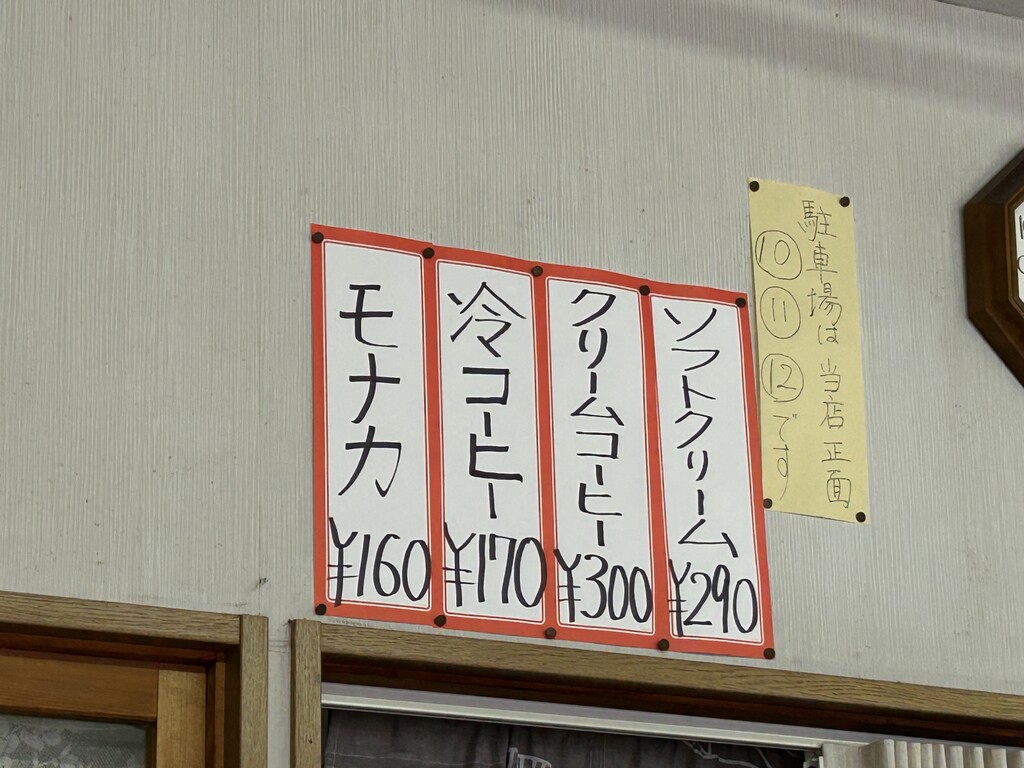 駐車場は当店正面
⑩⑪⑫です
ソフトクリーム
¥290
クリームコーヒー
¥300
冷コーヒー
¥170
モナカ
¥160